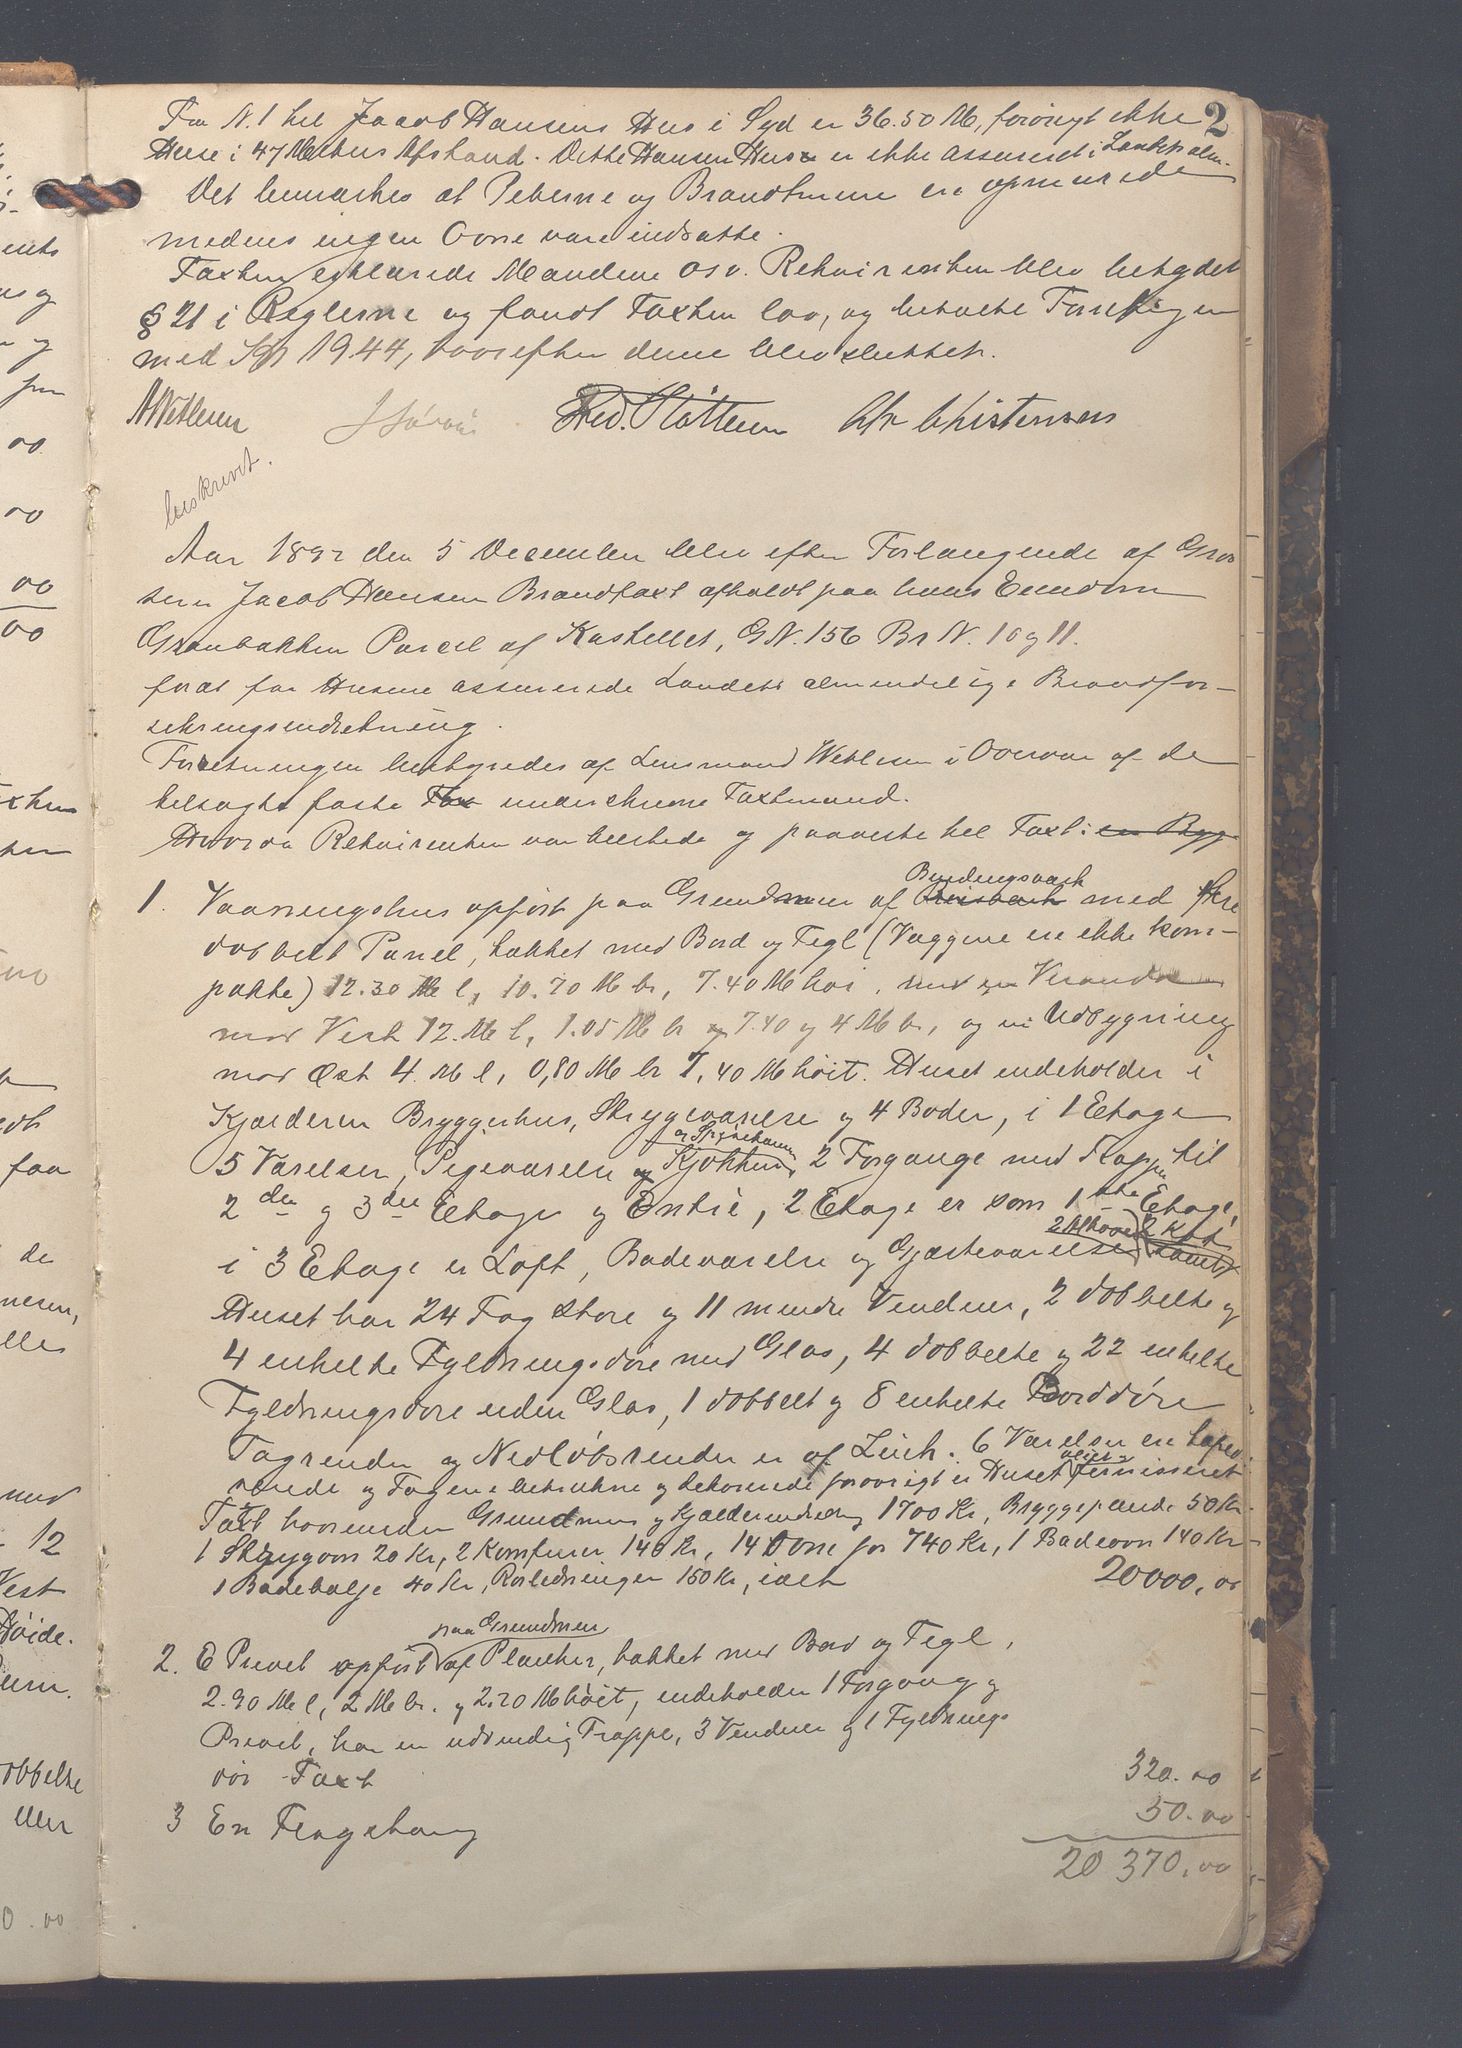 2
Fra N. 1 til Jacob Hansens Hus i Syd er 36.50 M, forøvrigt ikke
Huse i 47 Meters Afstand. Dette Hansen Hus er ikke assureret i Landets alm.
Det bemærkes at Peberne og Brandmurene ere opmurede
medens ingen Ovne vare indsatte.
Taxten erklærede Mændene osv. Rekvirenten blev betydet
§ 21 i Reglerne og fandt Taxten lav, og betalte Forretningen
med Kr 19.44, hvorefter denne blev sluttet.
A Wetlesen Fred. Plötteun Chr Christensen
beskrevet.
Aar 1892 den 5 December blev efter Forlangende af Gros
serer Jacob Hansen Brandtaxt afholdt paa hans Eiendom
Granbakken Parcel af Kastellet, G N. 156 Br N. 10 og 11.
for at faa Husene assurerede i Landets almindelige Brandfor-
sikringsindretning.
Forretningen bestyredes af Lensmand Wetlesen i Overvær af de
tilsagte faste Tax underskrevne Taxtmænd.
Hvorda Rekvirenten var tilstede og paaviste til Taxt: en Byg
1. Vaaningshus opført paa Grundmur af Reisværk Bindingsværk med
dobbelt Panel, tækket med Bord og Tegl (Væggene ere ikke kom-
pakte) 12.30 M l, 10.70 M br, 7.40 M høi, med en Veranda
mod Vest 12. M l, 1.05 M br og 7.40 og 4 M br, og en Udbygning
mod Øst 4. M l, 0,80 M br 7,40 M høit. Huset indeholder i
Kjælderen Bryggerhus, Strygeværelse og 4 Boder, i 1 Etage
5 Værelser, Pigeværelse og Kjøkken, og Spisekammer 2 Forgange med Trappe til
2den og 3die Etage og Entré, 2 Etage er som 1ste Etage,
i 3 Etage er Loft, Badeværelse og Gjæsteværelse 2 Alkover 2 Kot
Huset har 24 Fag store og 11 mindre Vinduer, 2 dobbelte og
4 enkelte Fyldningsdøre med Glas, 4 dobbelte og 22 enkelte
Fyldningsdøre uden Glas, 1 dobbelt og 8 enkelte Borddøre
Tagrender og Nedløbsrender er af Zink. 6 Værelser ere tapet-
serede og Tagene betrukne og dekorerede forøvrigt er Huset olie- fernisseret
Taxt hvorunder Grundmur og Kjælderindredning 1700 Kr, Bryggepande 50 Kr
1 Strygeovn 20 Kr, 2 Komfurer 140 Kr, 14 Ovne for 740 Kr, 1 Badeovn 140 Kr
1 Badebalje 40 Kr, Rørledninger 150 Kr, ialt 20000,00
2. Et Privet opført paa Grundmur af Planker, tækket med Bord og Tegl,
2.90 M l, 2 M br. og 2.70 M høit, indeholder 1 Forgang og
Privet, har en udvendig Trappe, 3 Vinduer og 1 Fyldnings
dør Taxt 320.00
3 En Flagstang 50.00
20 370,00